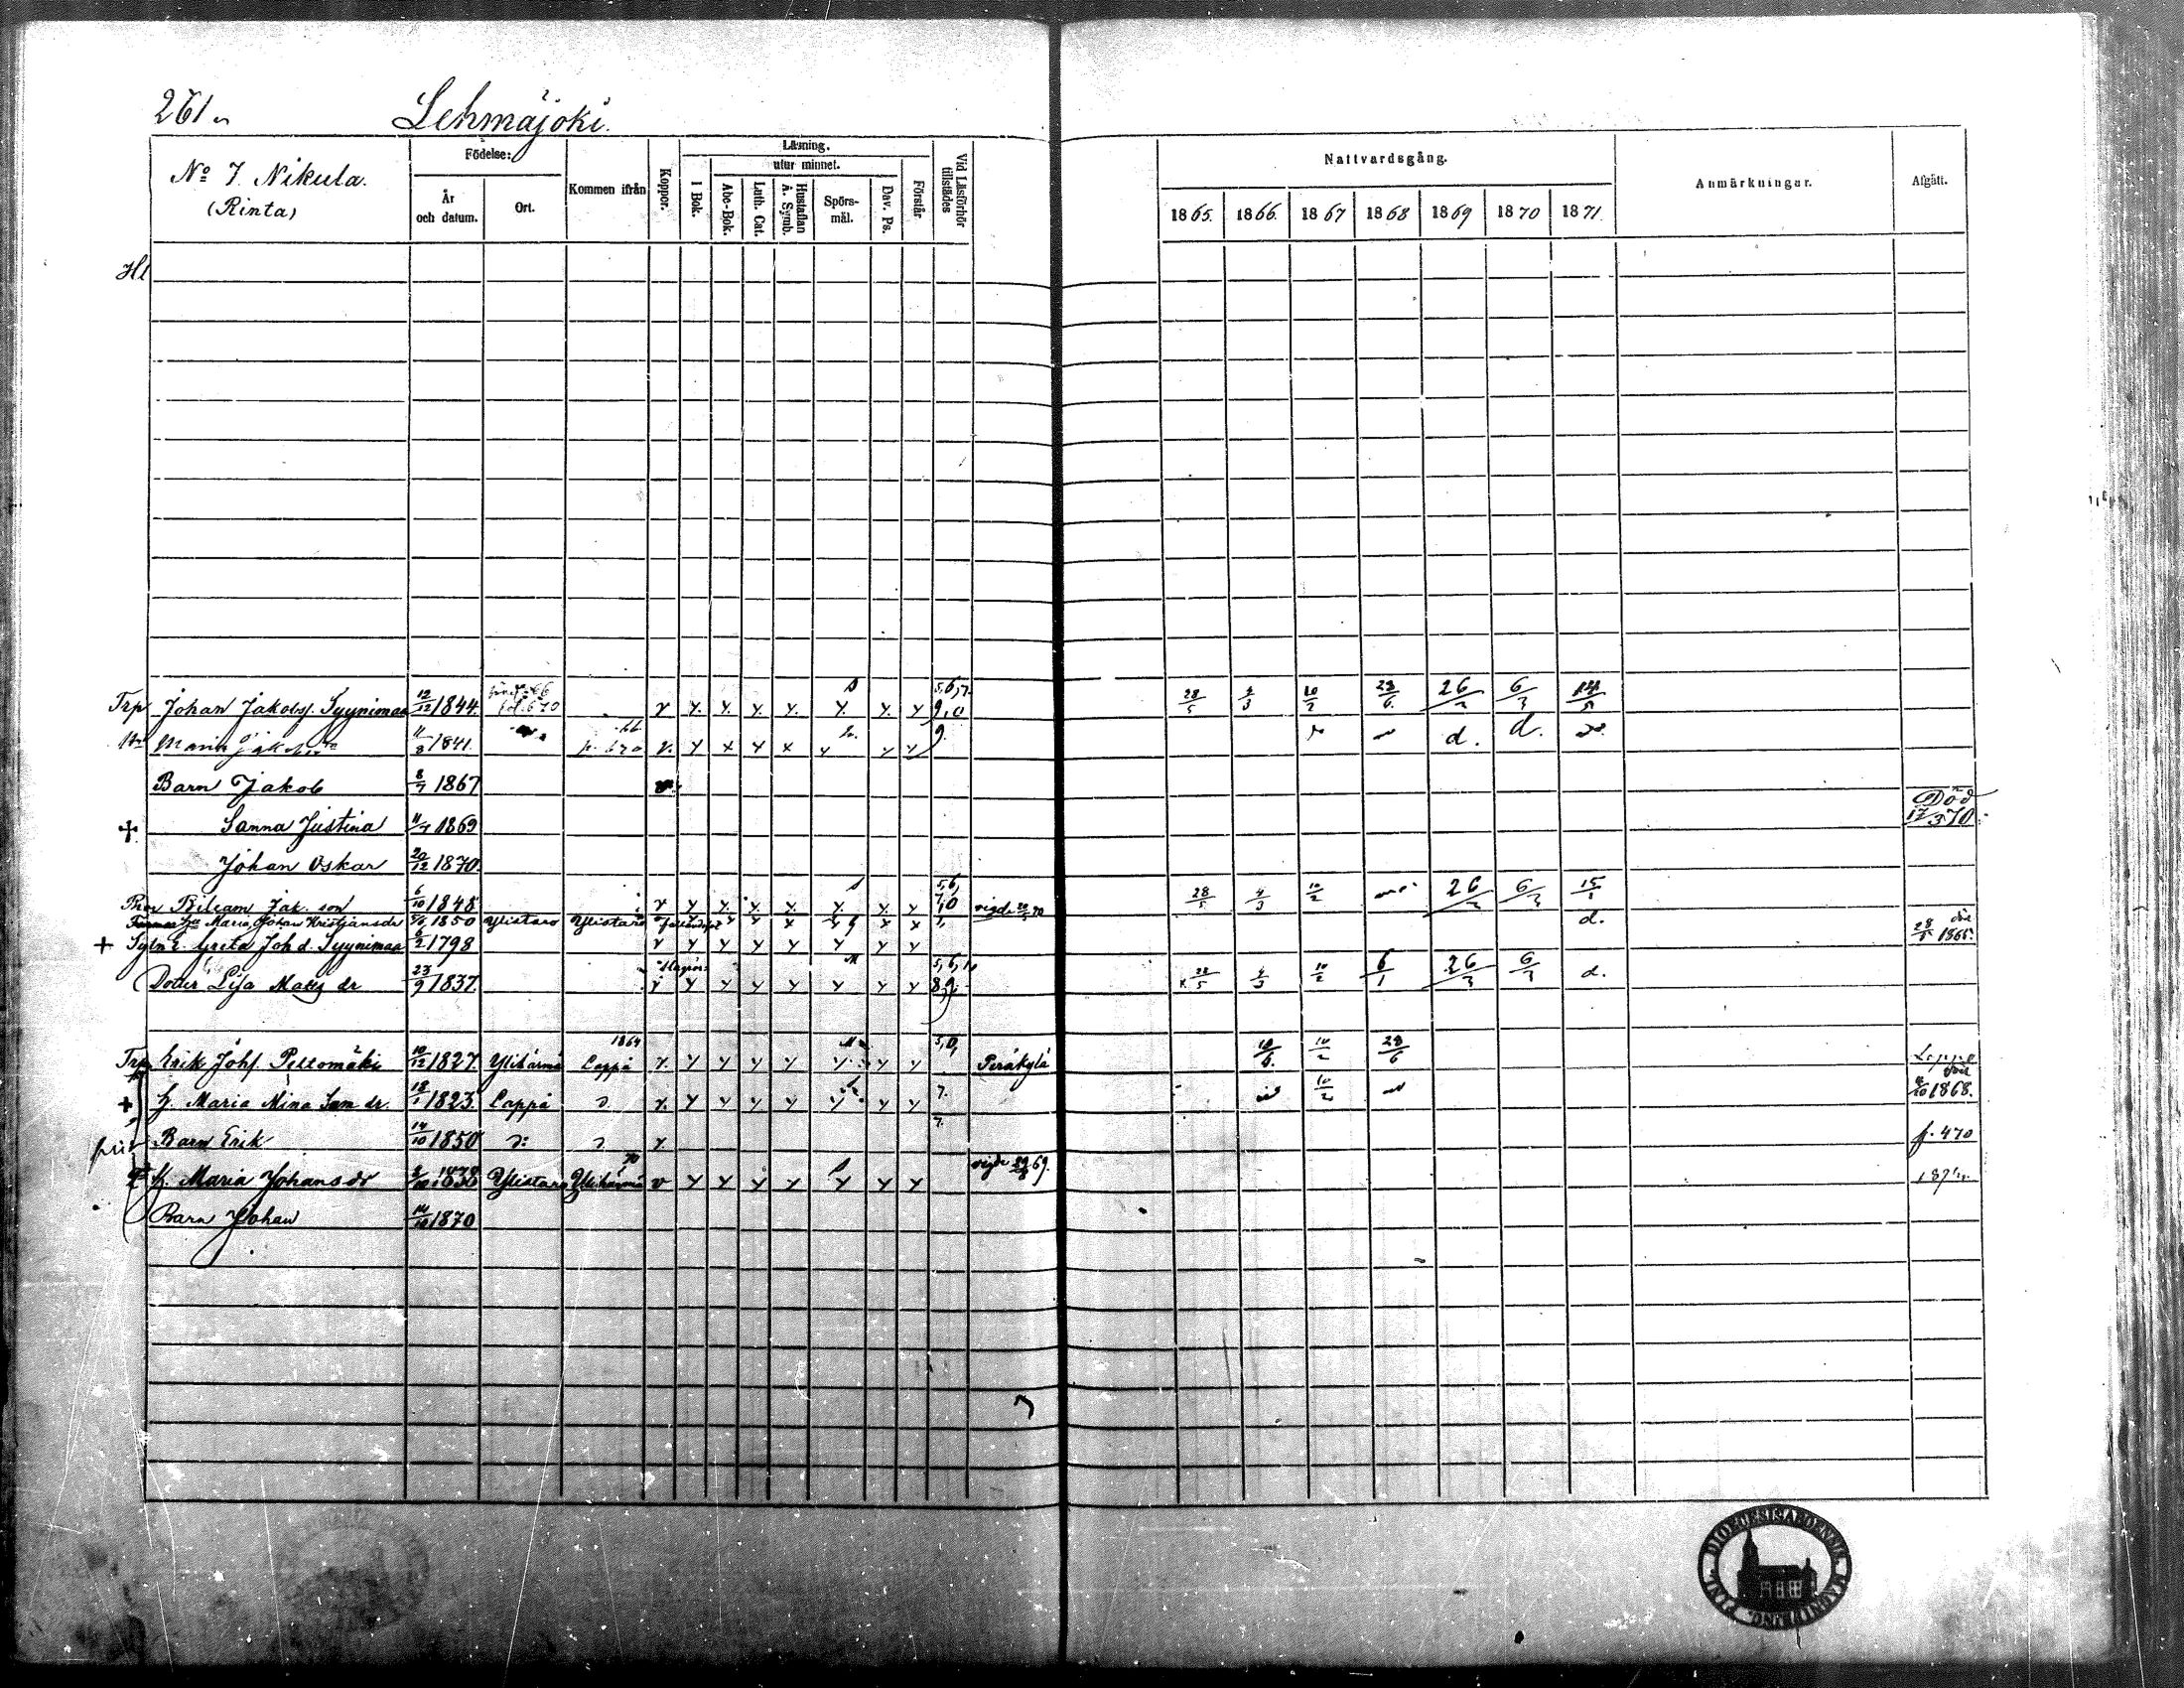 261
Lehmäjoki.
No 7. Nikula.
(Rinta)
Födelse:
År och datum.
Ort.
Kommen ifrån
Koppor.
Läsning.
utur minnet.
I Bok.
Abc-Bok.
Luth. Cat.
Hustaflan A. Symb.
Spörsmål.
Dav. Ps.
Förstår
Vid Läsförhör tillstädes
Nattvardsgång.
1865. 1866. 1867 1868 1869 1870 1871.
Anmärkningar.
Afgått.
Trp Johan Jakobss. Syynimaa 12/12 1844 fol. 670 y y. y. y y. y. y. y 5,6,7 9,0 28/5 4/3 10/2 28/6 26/2 6/3
Maria 11/8 1841 y. y x y x y y y 9. d. d.
Barn Jakob 8/7 1867
+ Sanna Justina 11/7 1869 Död 17/3 70
Johan Oskar 20/12 1870.
Bror Bileam Jak. son 6/10 1848 y y y. y y. y. y y 5,6, 7,0 vigde 20/5 70 28/5 4/3 10/2 26/2 6/3 15/1
Maria Johan Kristiansdr 1850 Ylistaro Ylistaro d.
+ Sytn. e. Greta Joh d. Syynimaa 6/2 1798 y y y y y y y y 28/5 1865.
Dotter Lisa Matts dr 23/9 1837. y y y y y y y y 5,6, 8,9 28/5 4/3 10/2 6/1 26/3 6/3 d.
Trp Erik Johs. Peltomäki 10/12 1827. Ylihärmä 1864 Lappå y. y y y y y y y 5,0, Peräkylä 10/6. 10/2 28/6 Lappo
+ h. Maria Mina Sam dr. 18/1 1823. Lappå d. y. y y y y y y y 7. 10/2 1868.
Barn Erik 14/10 1850 d: d y. 7. f. 470
h. Maria Johans dr 1838 Ylistaro Ylihärmä 70 v y y y y y y y vigde 69.
Barn Johan 14/10 1870
DIOECESIS ABOENSIS